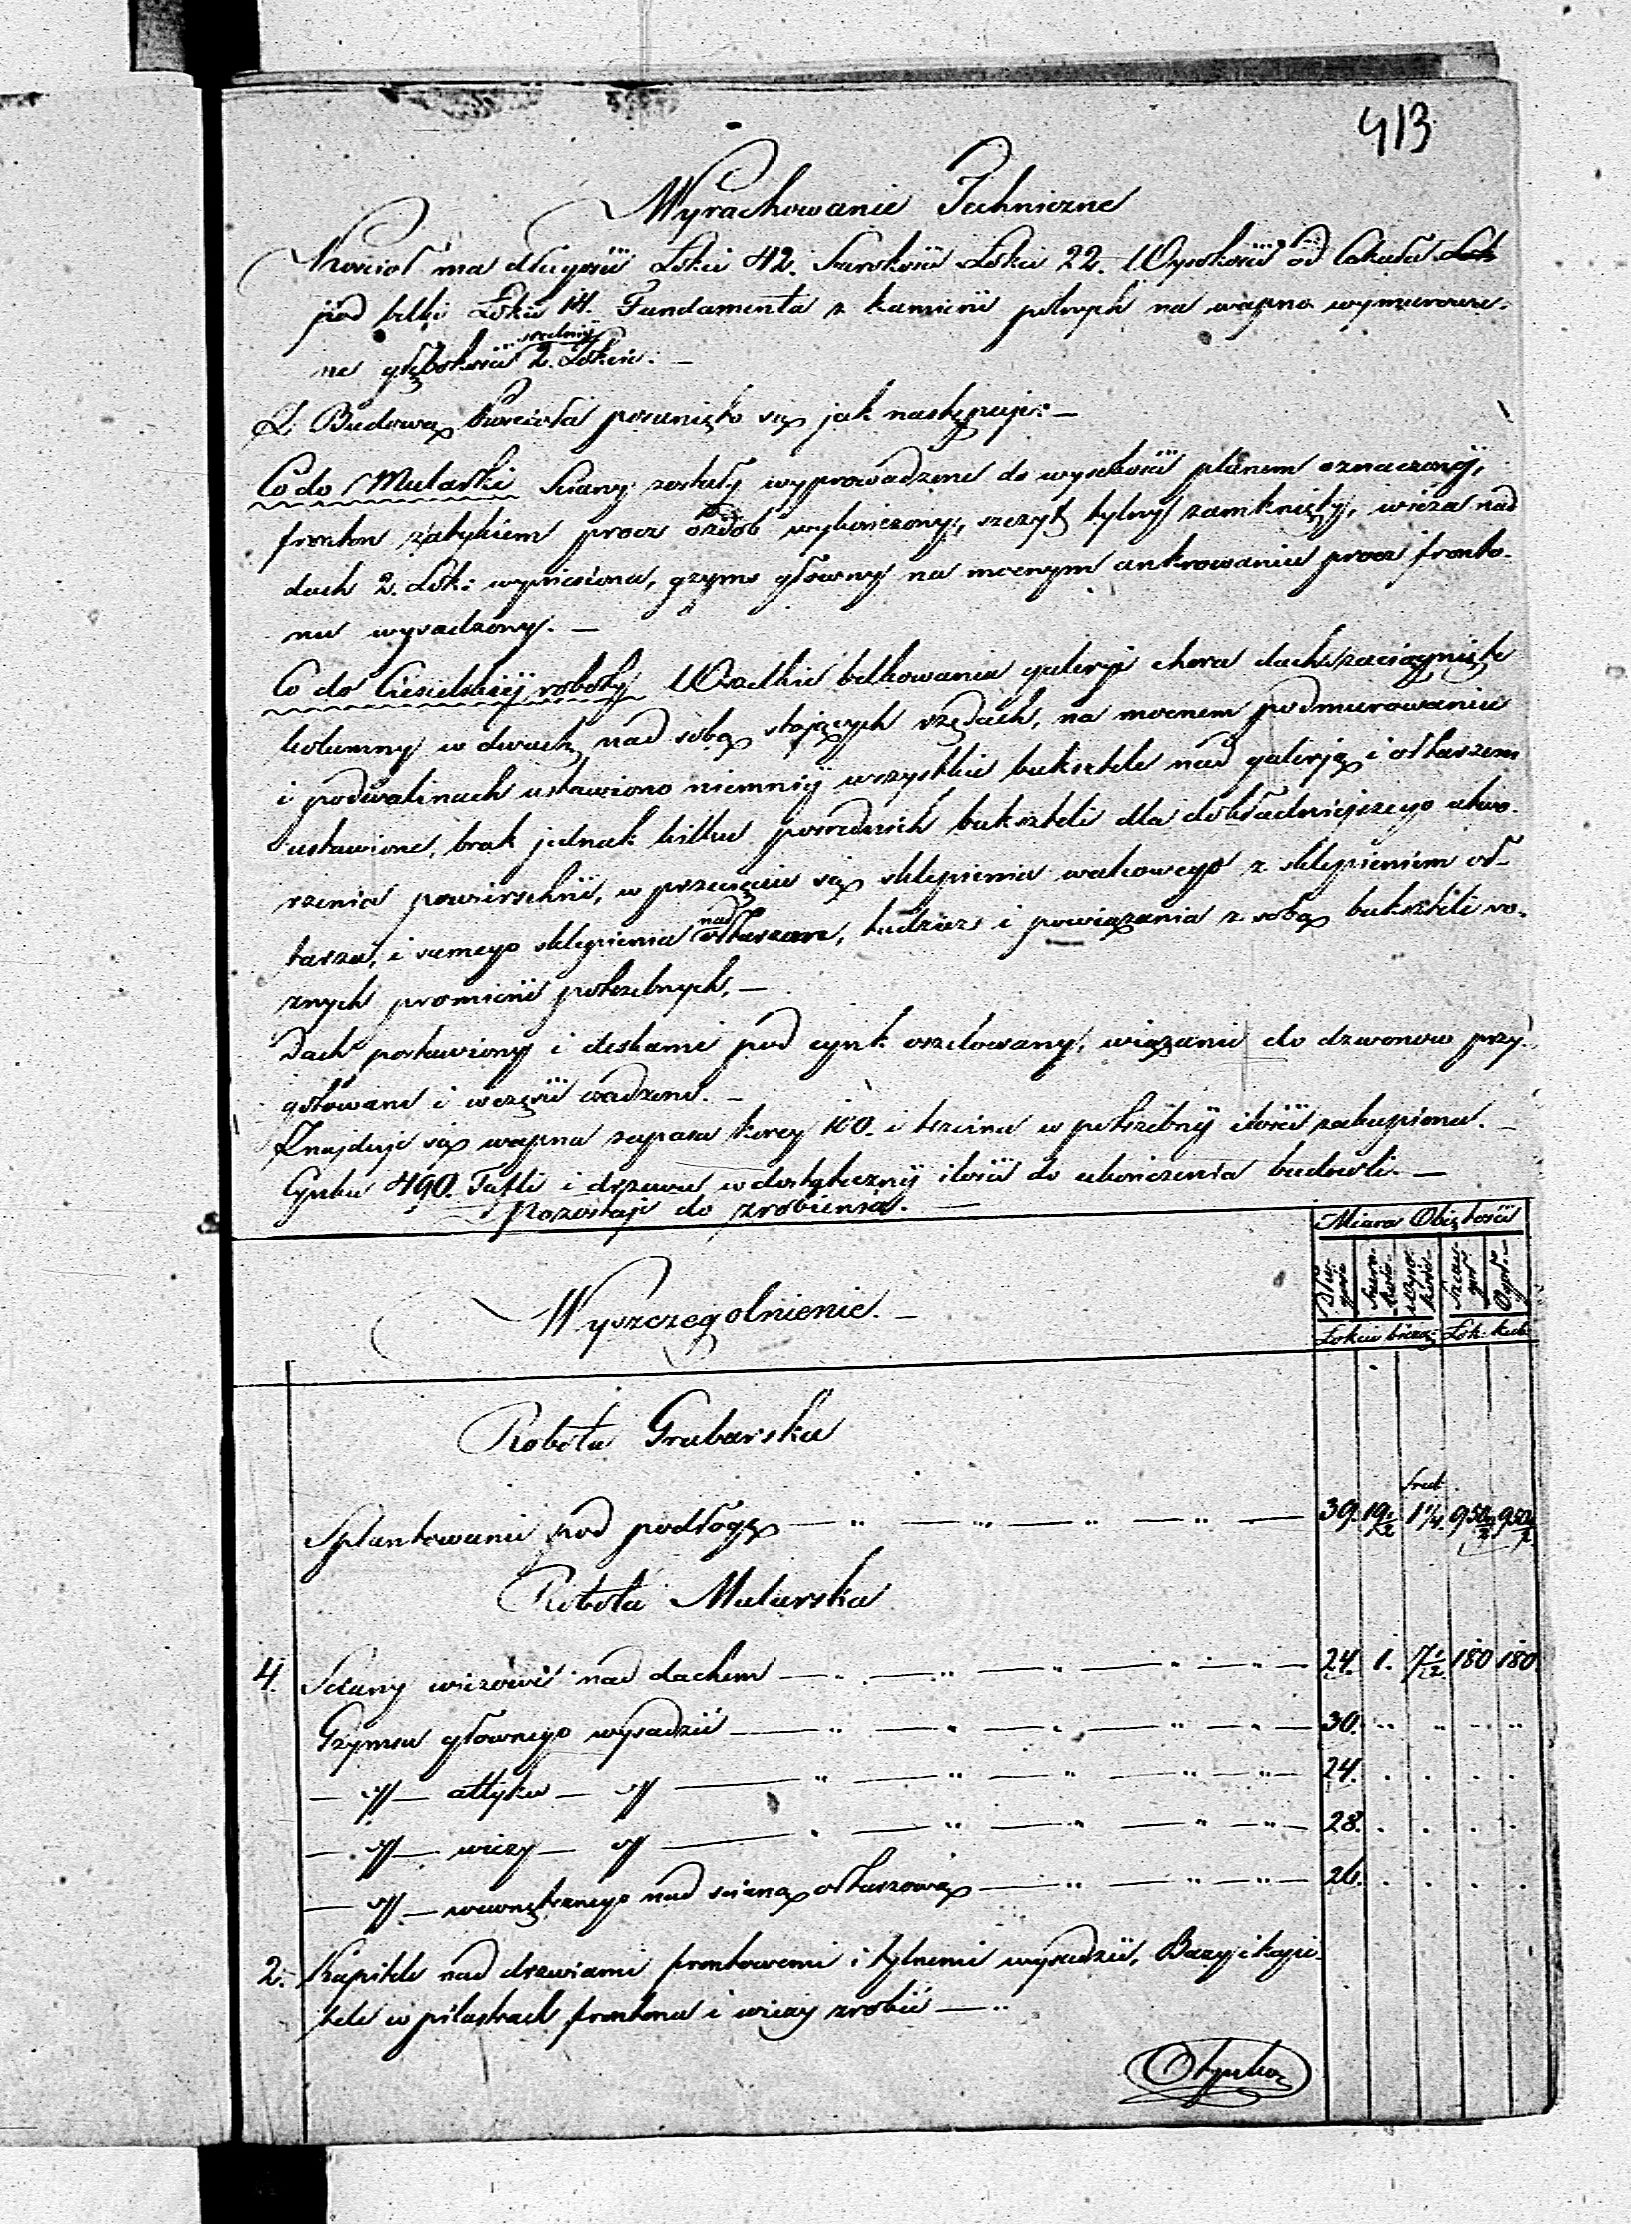 413
Wyrachowanie Techniczne
Koscioł ma długości Łokci 42. Szerokości Łokci 22. Wysokości od
pod belki Łokci 14. Fundamenta z kamieni polnych na wapno wymurowa-
ne głębokości średniej 2. Łokcie. —
Z Budową kościoła posunięto się jak następuje: —
Co do Mularki Sciany zostały wyprowadzone do wysokości planem oznaczonej,
fronton z attykiem procz ozdob wykończony, szczyt tylny zamknięty, wieża nad
dach 2. Łok: wyniesiona, gzyms głowny na mocnym ankrowaniu procz fronto-
nu wysadzony. —
Co do Ciesielskiej roboty Wszelkie belkowania galeryi chora dachu zaciągnięte
kolumny w dwoch nad sobą stojących rzędach, na mocnem podmurowaniu
i podwalinach ustawiono niemniej wszystkie buksztele nad galeryą i ołtarzem
ustawione, brak jednak kilku posrednich buksteli dla dokładniejszego utwo-
rzenia powierzchni, w przecięciu się sklepienia walcowego z sklepieniem oł-
tarza, i samego sklepienia nad ołtarzem, tudzież i powiązania z sobą buksteli ro-
znych promieni potrzebnych, —
Dach postawiony i deskami pod cynk oszalowany, wiązanie do dzwonow przy-
gotowane i w części osadzone. —
Znajduje się wapna zapasu korcy 100. i trzcina w potrzebnej ilości zakupiona. —
Cynku 490. Tafli i drzewa w dostatecznej ilości do ukończenia budowli. —
Pozostaje do zrobienia. —
Miara Objętości
Wyszczegolnienie. —
Dłu-gość Szero-kość Wyso-kość Szcze-guł Ogół
Łokcie bieżą: Łok: kub:
Robota Grabarska
Sred:
Splantowanie pod podłogę 39. 19 1/2 1 1/4 950 1/2 950 1/2
Robota Mularska
4. Sciany wieżowe nad dachem 24. 1. 7 1/2 180 180
Gzymsu głownego wysadzić 30.
— " — attyku — " 24.
— " — wieży — " 28.
— " — wewnętrznego nad scianą ołtarzową 26.
2. Kapitele nad drzwiami frontowemi i tylnemi wysadzić, Bazy i kapi-
tele w pilastrach frontonu i wieży zrobić —